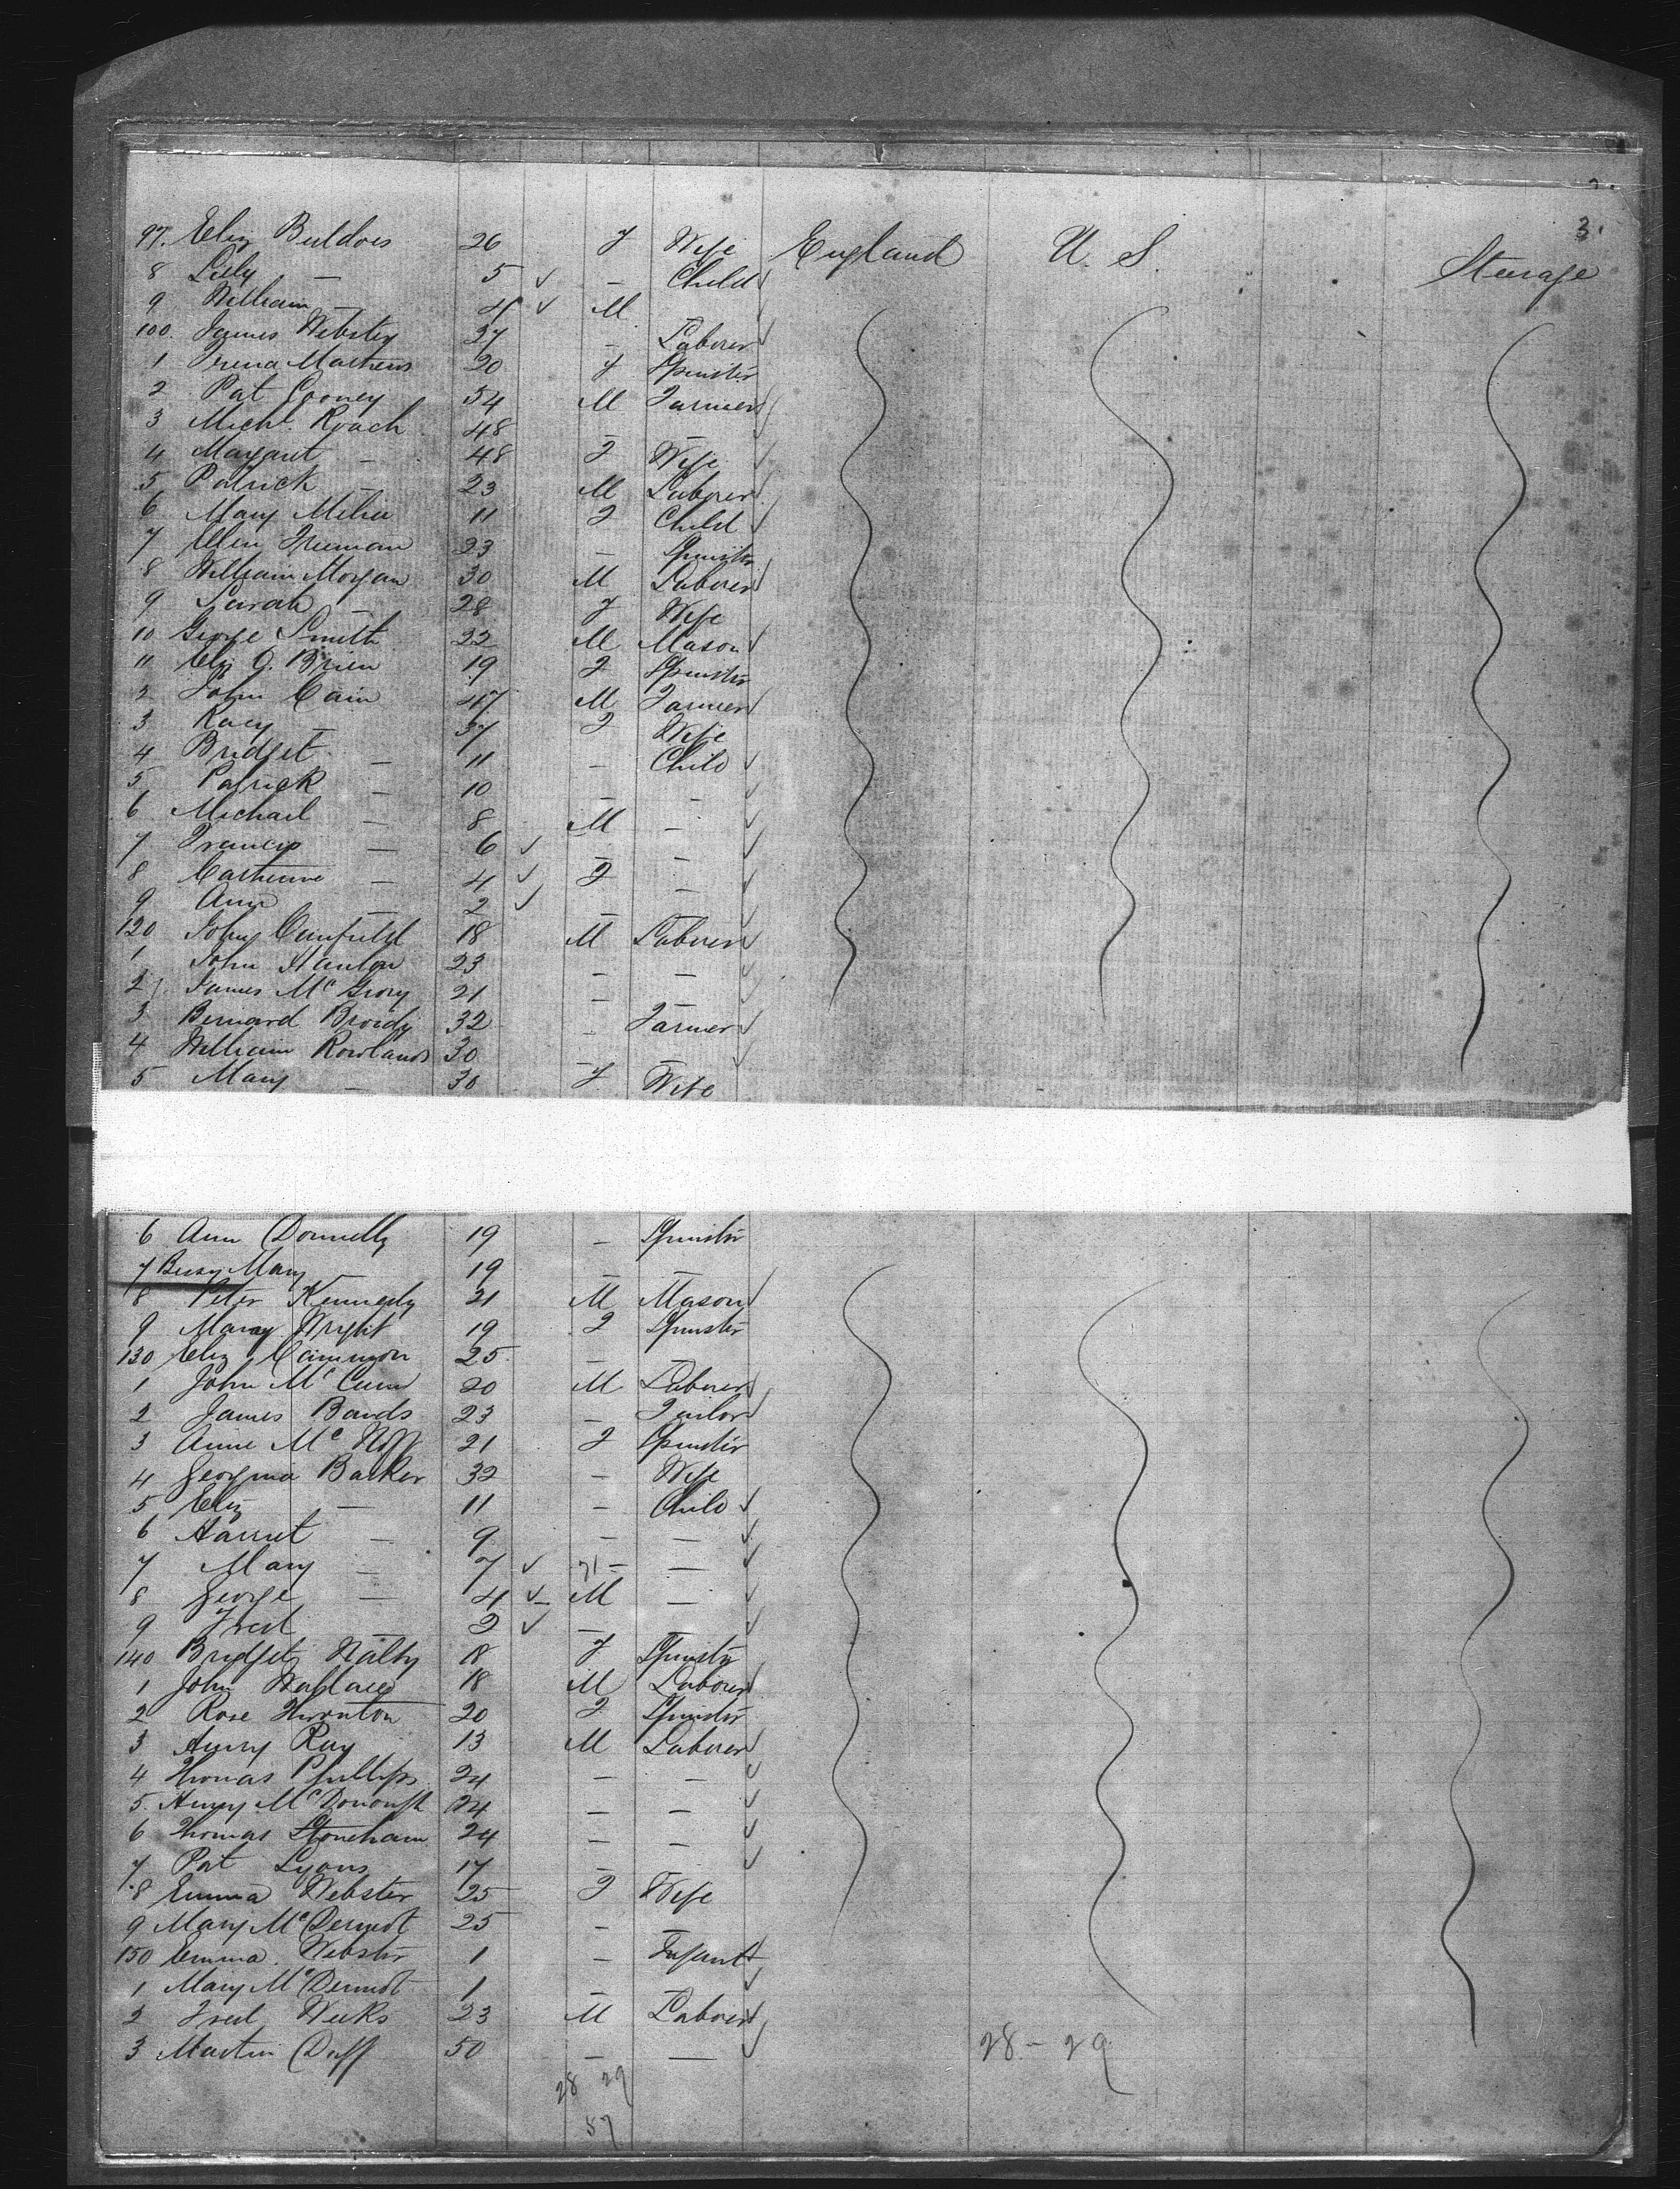 3.
97. Eliz Buldois 26 F Wife England U. S. Steerage
8 Lily — 5 ✓ — Child ✓
9 William — 4 ✓ M
100. James Webster 27 — Laborer ✓
1 Mathews 20 F Spinster
2 Pat Cooney 54 M Farmer ✓
3 Michl. Roach 48 — — ✓
4 Margaret — 48 F Wife ✓
5 Patrick — 23 M Laborer ✓
6 Mary 11 F Child ✓
7 Ellen Freeman 23 — Spinster
8 William Morgan 30 M Laborer ✓
9 Sarah — 28 F Wife
10 George Smith 22 M Mason ✓
11 Eliz O. Brien 19 F Spinster
2 John Cain 47 M Farmer ✓
3 — 37 F Wife
4 Bridget — 11 — Child ✓
5 Patrick — 10 — — ✓
6 Michael — 8 M — ✓
7 Francis — 6 ✓ — — ✓
8 Catherine — 4 ✓ F — ✓
9 Ann — 2 ✓ — — ✓
120 John Canfield 18 M Laborer ✓
1 John Hanlon 23 — — ✓
2 James Mc Grory 21 — — ✓
3 Bernard Brordy 32 — Farmer ✓
4 William Rowlands 30 — — ✓
5 Mary — 30 F Wife
6 Ann Donnelly 19 — Spinster
7 Mary 19 — —
8 Peter Kennedy 21 M Mason ✓
9 Mary Wright 19 F Spinster
130 Eliz Cammyon 25 — —
1 John Mc Cann 20 M Laborer ✓
2 James Bands 23 — Tailor ✓
3 Anne Mc 21 F Spinster
4 Georgina Barker 32 — Wife
5 Eliz — 11 — Child ✓
6 Harriet — 9 — — ✓
7 Mary — 7 ✓ — — ✓
8 George — 4 ✓ M — ✓
9 Fred — 2 ✓ — — ✓
140 Bridget Nalty 18 F Spinster
1 John Wallace 18 M Laborer ✓
2 Rose Thornton 20 F Spinster
3 Henry Ray 13 M Laborer ✓
4 Thomas Phillips 24 — — ✓
5. Henry Mc Donough 24 — — ✓
6 Thomas Stoneham 24 — — ✓
7 Pat Lyons 17 — — ✓
8 Emma Webster 25 F Wife
9 Mary Mc Dermot 25 — —
150 Emma Webster 1 — Infant ✓
1 Mary Mc Dermot 1 — — ✓
2 Fred Weeks 23 M Laborer ✓
3 Martin Duff 50 — — ✓
28 - 29
28 29
57